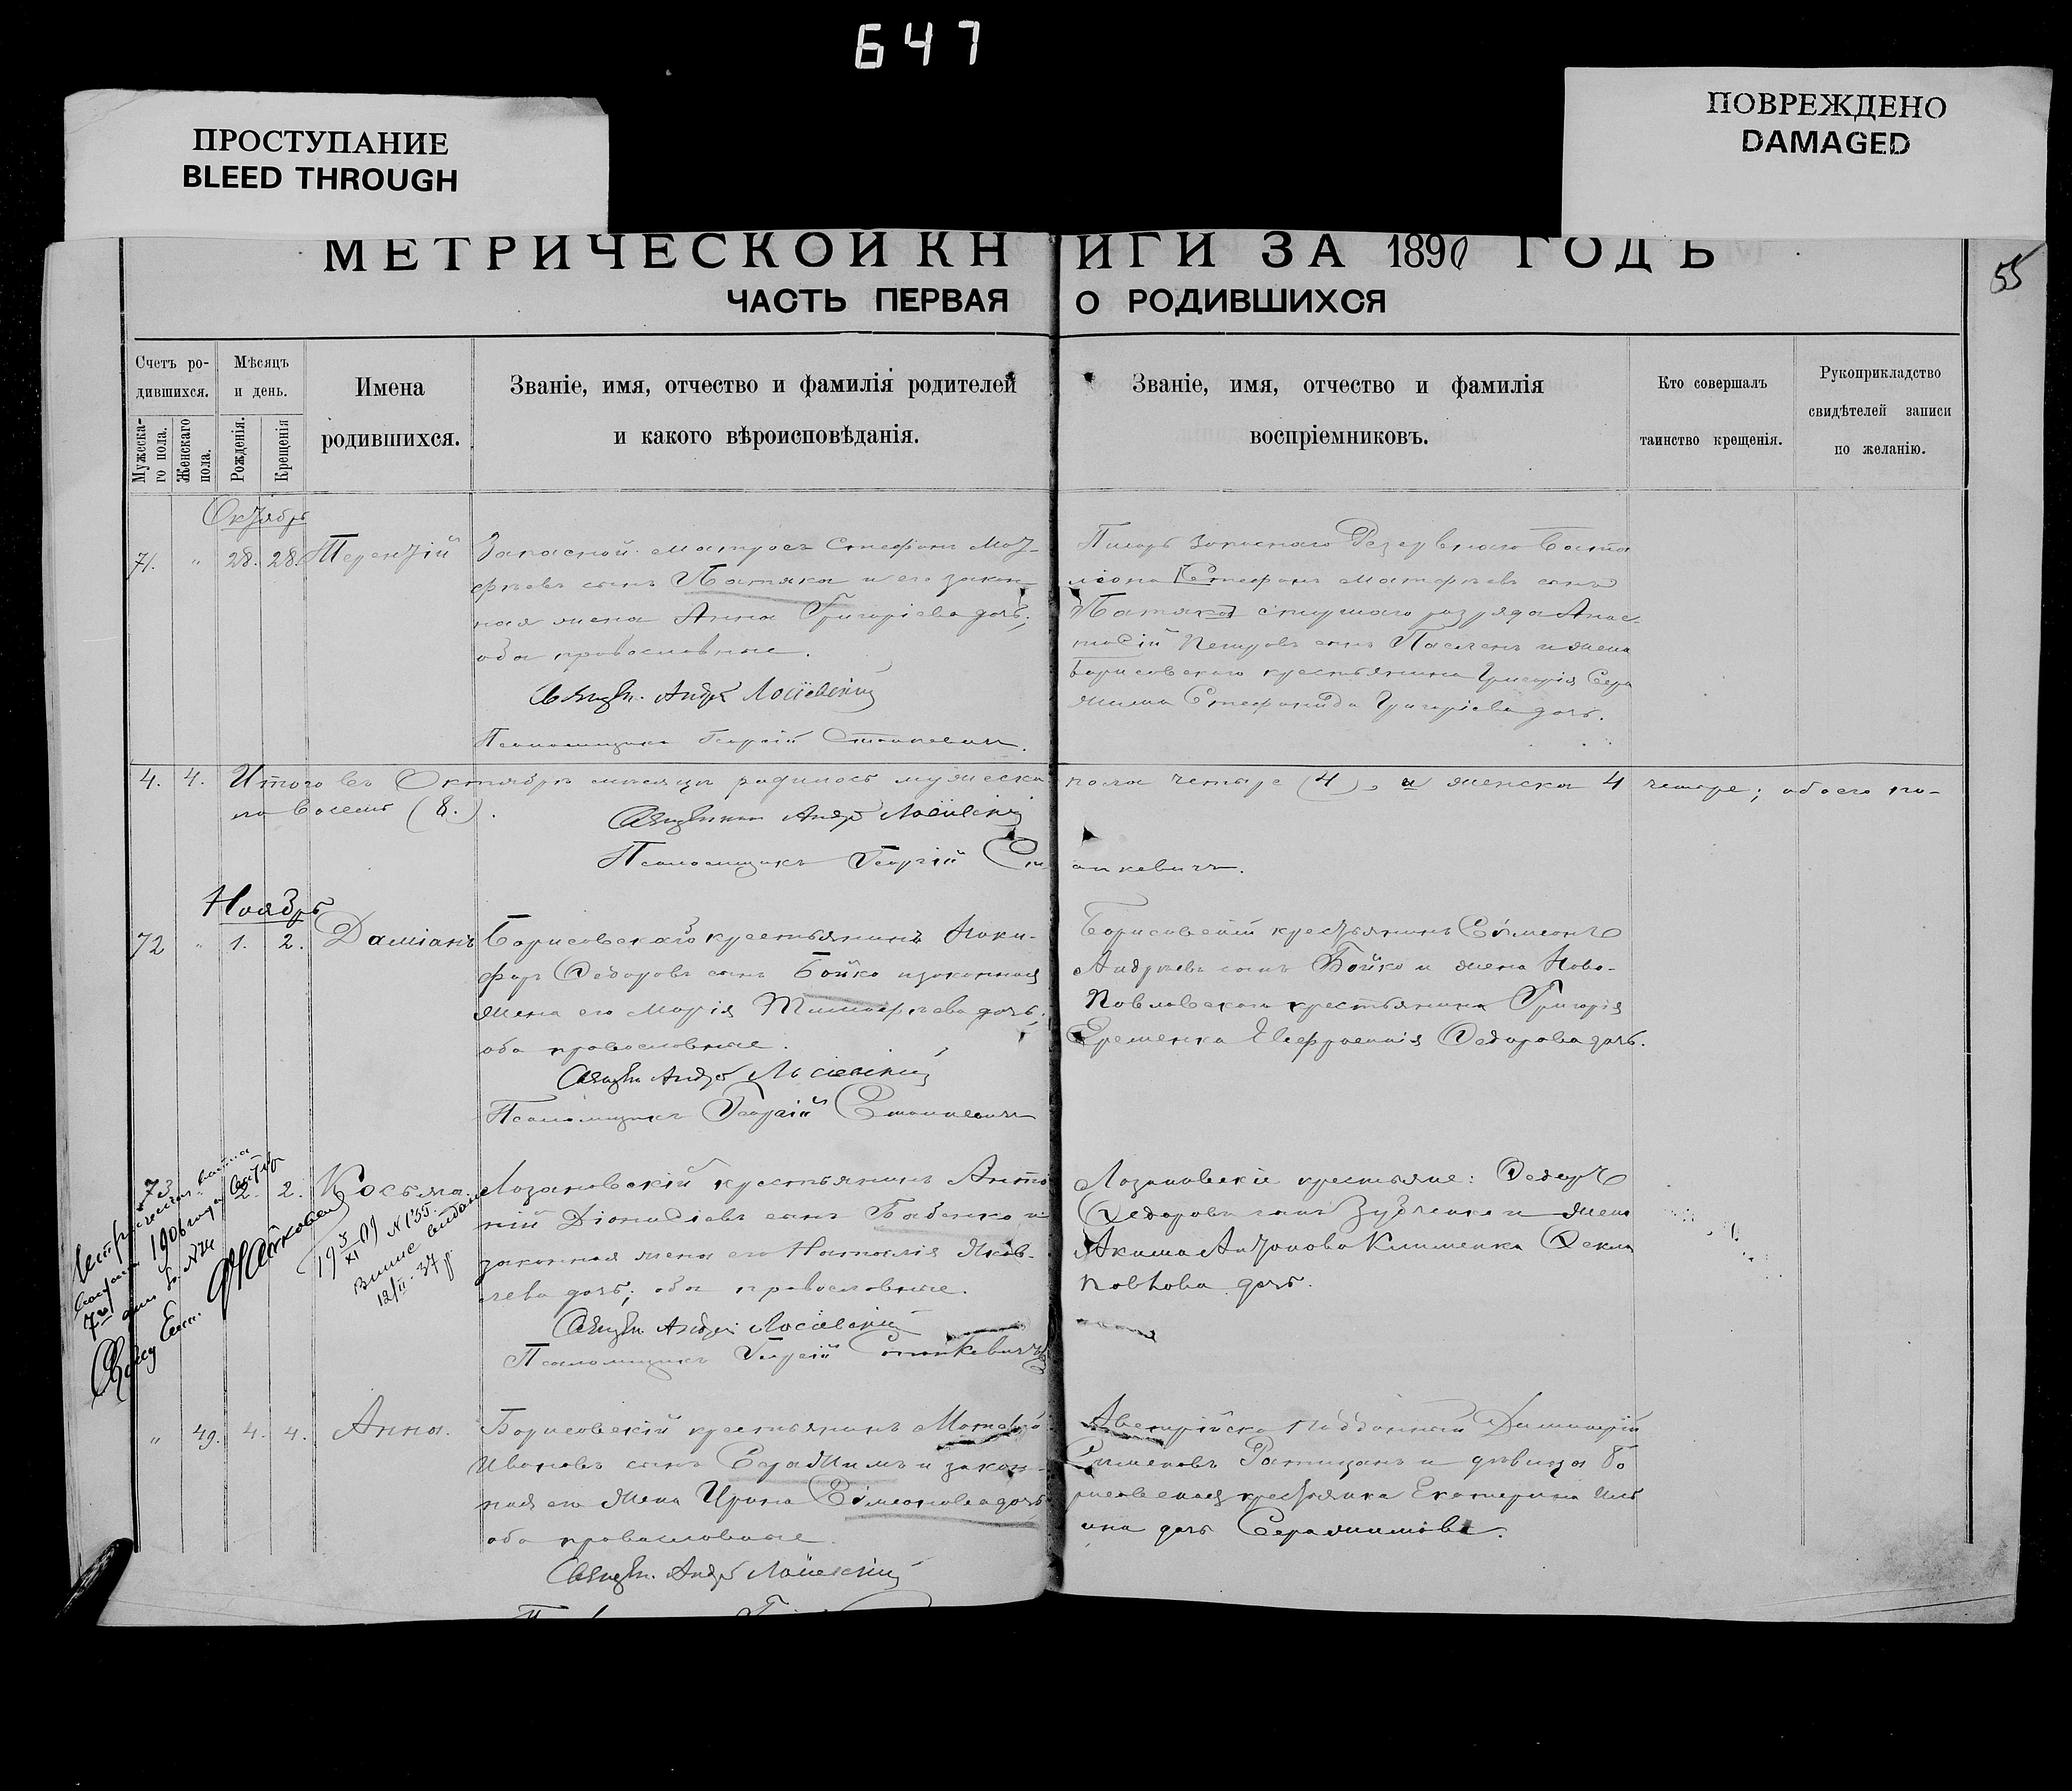 647
ПРОСТУПАНИЕ
BLEED THROUGH
ПОВРЕЖДЕНО
DAMAGED
МЕТРИЧЕСКОЙ КНИГИ ЗА 1890 ГОДЪ
55
ЧАСТЬ ПЕРВАЯ О РОДИВШИХСЯ
Счетъ ро-
дившихся.
Мужеска-
го пола.
Женскаго
пола.
Мѣсяцъ
и день.
Рожденія.
Крещенія
Имена
родившихся.
Званіе, имя, отчество и фамилія родителей
и какого вѣроисповѣданія.
Званіе, имя, отчество и фамилія
воспріемниковъ.
Кто совершалъ
таинство крещенія.
Рукоприкладство
свидѣтелей записи
по желанію.
Октябрь
71. " 28. 28. Терентій
Запасной матросъ Стефанъ Мат-
фѣевъ сынъ Патяка и его закон-
ная жена Анна Григоріева дочь;
оба православные.
Священ. Андрей
Псаломщикъ Георгій Станкевичъ.
Стефанъ Матфѣевъ сынъ
Петровъ сынъ и жена
Борисовскаго крестьянина Григорія Сера
жима Стефанида Григоріева дочь.
4. 4. Итого въ Октябрѣ мѣсяцѣ родилось мужеска пола четыре (4), и женска 4 четыре; обоего по-
ла восемь (8.).
Священникъ Андрей
Псаломщикъ Георгій Станкевичъ.
Ноябрь
72 " 1. 2. Даміанъ
Борисовскаго крестьянинъ Ники-
форъ Федоровъ сынъ Бойко и законная
жена его Марія Тимофѣева дочь;
оба православные.
Священ. Андрей
Псаломщикъ Георгій Станкевичъ
Борисовскій крестьянинъ Симеонъ
Андреевъ сынъ Бойко и жена Ново-
Павловскаго крестьянина Григорія
Еременка Евфросинія Федорова дочь.
73 " 2. 2. Косьма.
Лозановскій крестьянинъ Анто
ній Діонисіевъ сынъ Бабенко и
законная жена его Наталія Яков-
лева дочь; оба православные.
Священ. Андрей
Псаломщикъ Георгій Станкевичъ
Лозановскіе крестьяне: Федоръ
Федоровъ сынъ Зубченко и жена
Акима Антонова Клименка Фекла
Павлова дочь.
1906 года
19 5/XI 19 N 135.
12/II-37
" 49. 4. 4. Анна.
Борисовскій крестьянинъ Матвѣй
Ивановъ сынъ Серажимъ и закон-
ная его жена Ирина Симеонова дочь
оба православные.
Священ. Андрей
Австрійско подданный Димитрій
Сименовъ и дѣвица Бо
рисовская крестьянка Екатерина Иль
ина дочь Серажимова.